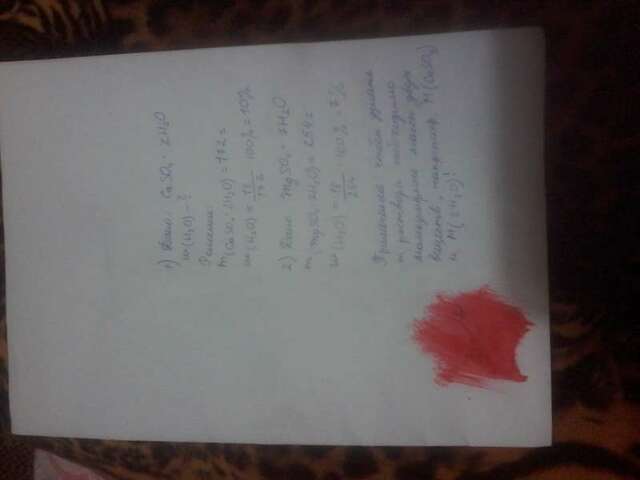 1) Дано: CaSO₄ · 2H₂O
w(H₂O) - ?
Решение:
m(CaSO₄·2H₂O) = 172 г
w(H₂O) = 18/172 · 100% = 10%
2) Дано MgSO₄ · 7H₂O
m(MgSO₄·7H₂O) = 254 г
w(H₂O) = 18/254 · 100% = 7%
Примечание чтобы узнать
m раствора необходимо
массы двух
веществ, например M(CaSO₄)
и M(2H₂O)!